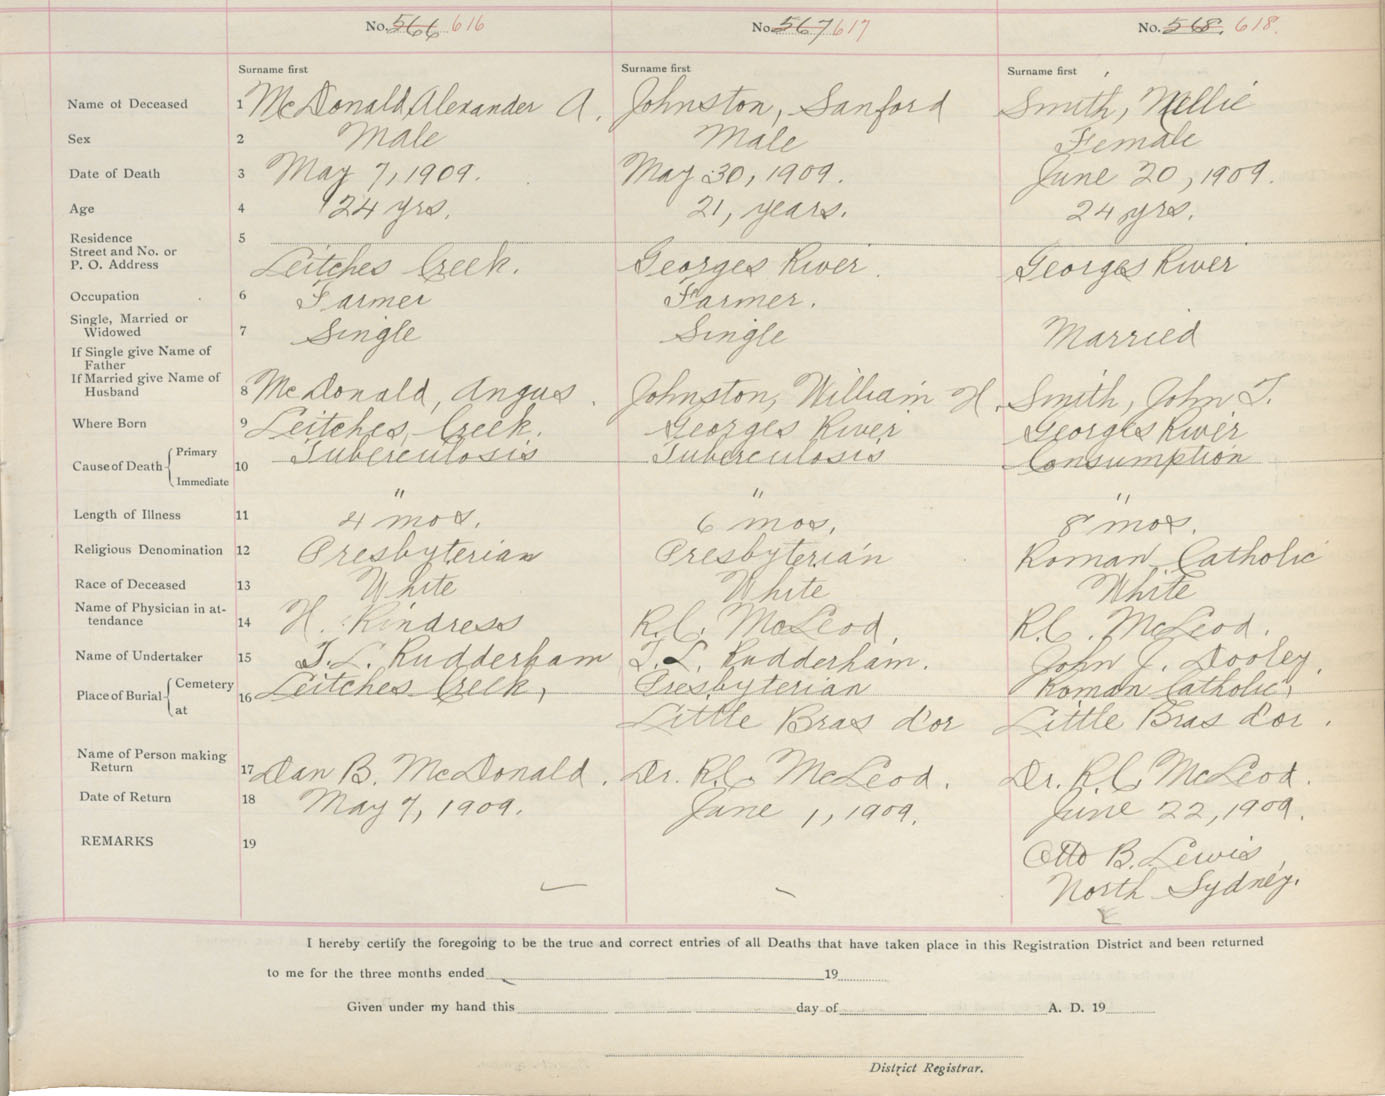 No. 566 616 No. 567 617 No. 568. 618.
Surname first Surname first Surname first
Name of Deceased 1 McDonald, Alexander A. Johnston, Sanford Smith, Nellie
Sex 2 Male Male Female
Date of Death 3 May 7, 1909. May 30, 1909. June 20, 1909.
Age 4 24 yrs. 21, years. 24 yrs.
Residence 5
Street and No. or
P. O. Address Leitches Creek. Georges River. Georges River
Occupation 6 Farmer Farmer.
Single, Married or
Widowed 7 Single Single Married
If Single give Name of
Father
If Married give Name of
Husband 8 McDonald, Angus. Johnston, William H. Smith, John T.
Where Born 9 Leitches, Creek. Georges River Georges River
Cause of Death Primary 10 Tuberculosis Tuberculosis Consumption
Immediate " " "
Length of Illness 11 4 mos. 6 mos. 8 mos.
Religious Denomination 12 Presbyterian Presbyterian Roman Catholic
Race of Deceased 13 White White White
Name of Physician in at-
tendance 14 H. Rindress R.C. McLeod, R.C. McLeod.
Name of Undertaker 15 T. L. Rudderham T. L. Rudderham. John J. Dooley,
Place of Burial Cemetery 16 Leitches Creek, Presbyterian Roman Catholic,
at Little Bras d'or Little Bras d'or.
Name of Person making
Return 17 Dan B. McDonald. Dr. R.C. McLeod. Dr. R.C. McLeod.
Date of Return 18 May 7, 1909. June 1, 1909. June 22, 1909.
REMARKS 19 Otto B. Lewis,
North Sydney.
I hereby certify the foregoing to be the true and correct entries of all Deaths that have taken place in this Registration District and been returned
to me for the three months ended 19
Given under my hand this day of A. D. 19
District Registrar.